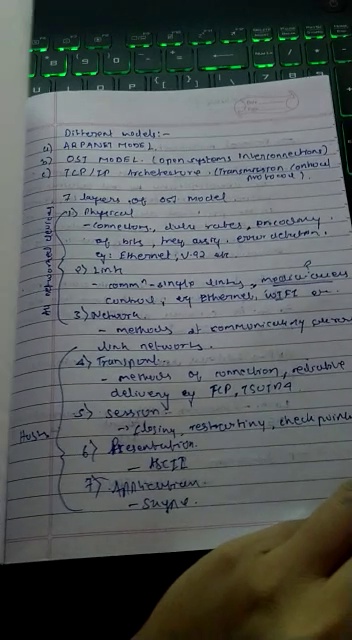 Different models:-
a) ARPANET MODEL.
b) OSI MODEL. (open systems interconnections)
c) TCP/IP Archetecture. (Transmission control
protocol)
7 layers of OSI model
All networked devices
1) Physical
- connectors, data rates, encoding
of bits, freq assig. error detection.
eg: Ethernet, V.92 etc.
2) Link
- comm^n - single links, media access
control, eg Ethernet, WIFI etc.
3) Network
- methods of communicating across
link networks.
Hosts
4) Transport
- methods of connection,
delivery eg TCP,
5) Session
-> closing, restarting, check points
6) Presentation
- ASCII
7) Application
- Skype.